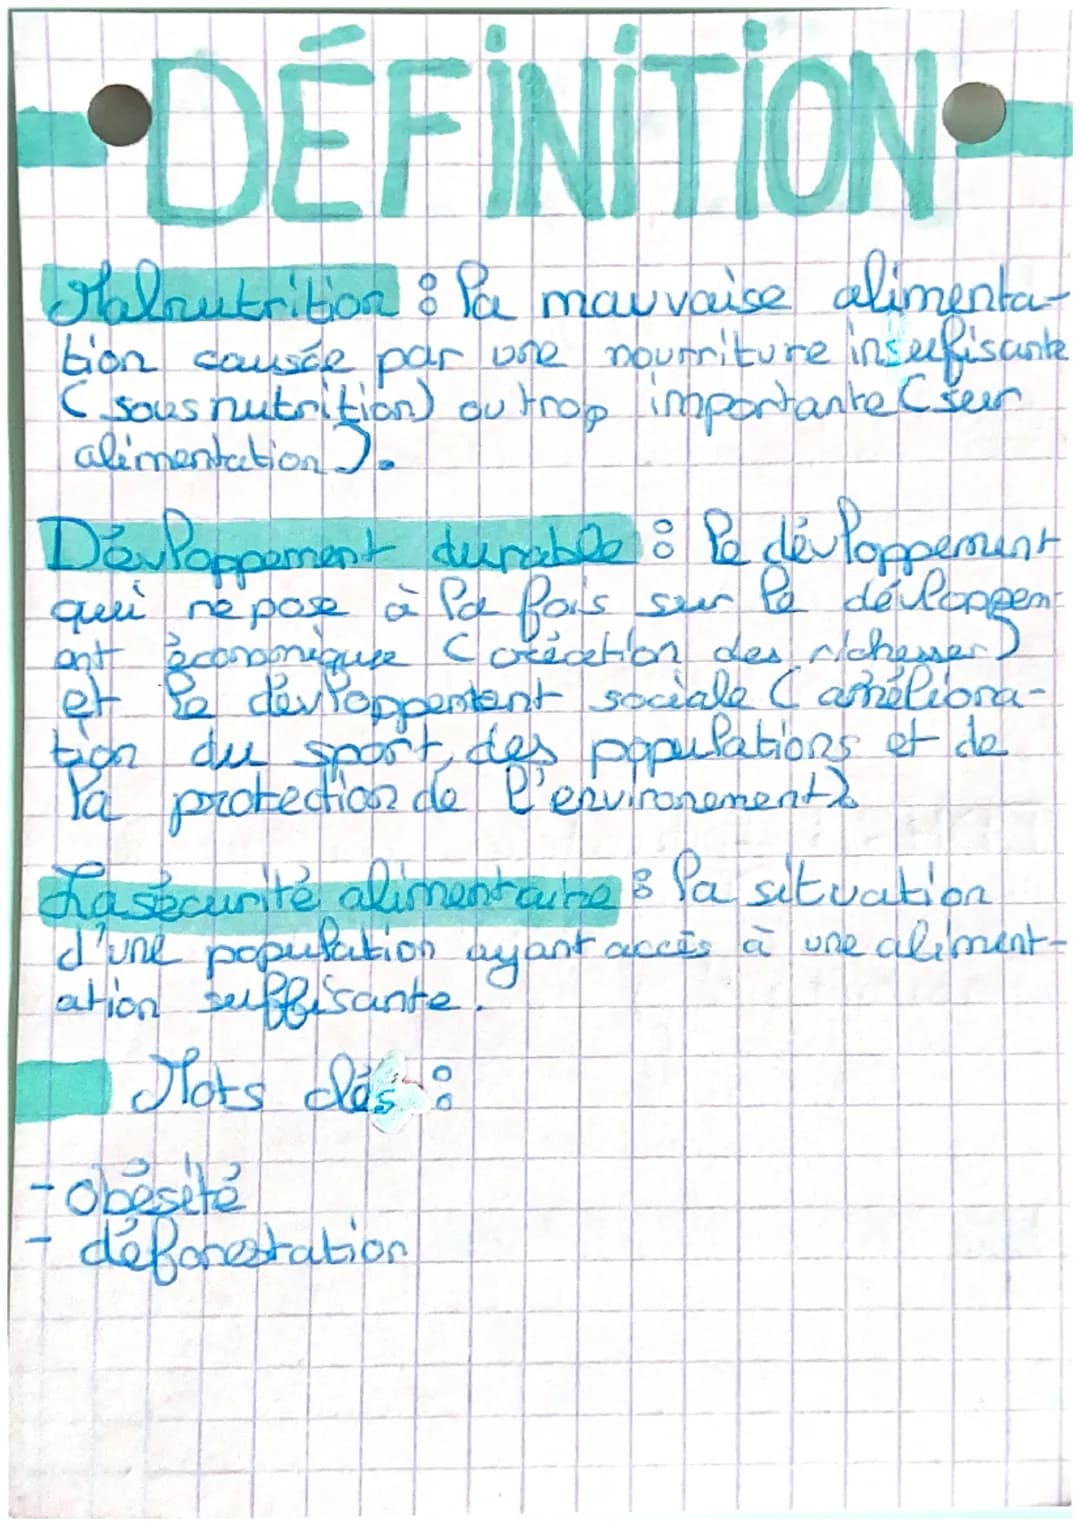 DÉFINITION
Malnutrition : la mauvaise alimenta-
tion causée par une nourriture insufisante
(sousnutrition) ou trop importante (sur
alimentation).
Dévloppement durable : le dévloppement
qui repose à la fois sur le développem-
ent économique (création des richesses)
et le dévloppement sociale (améliora-
tion du sport, des populations et de
la protection de l'environement).
La sécurité alimentaire : la situation
d'une population ayant accès à une aliment-
ation suffisante.
Mots clés :
- obésité
- déforestation